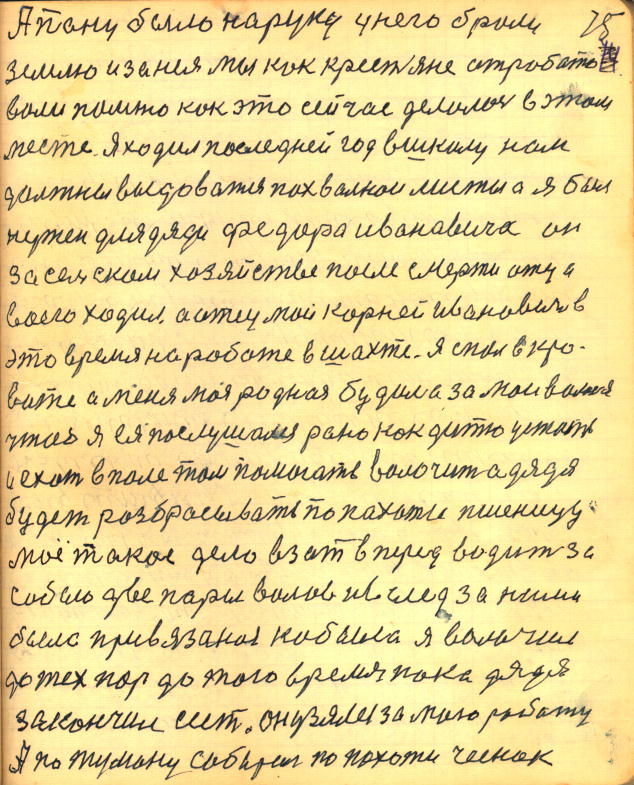 А пану было на руку у него брали 75
землю и за нея мы как крестяне отробато
вали помню как это сейчас делолоч в этом
месте. Я ходил последней год в школу нам
должны выдоватя похвалной листы а я был
нужен для дяди федора ивановича он
за селским хозяйстве после смерти отца
воего ходил, а отец мой корней Иванович в
это время на работе в шахте. Я спал в кро-
вате а меня моя родная будила за мои волося
чтоб я ея послушался рано как дитю устать
и ехат в поле там помогать волочит а дядя
будет розбрасывать по пахоти пшеницу
моё такое дело взат вперед водит за
собою две пары волов и в след за ними
была привязаноя кобыла я волочил
до тех пор до того время пока дядя
закончил сеят. он узялся за мою работу
А по туману собирал по похоти чеснок